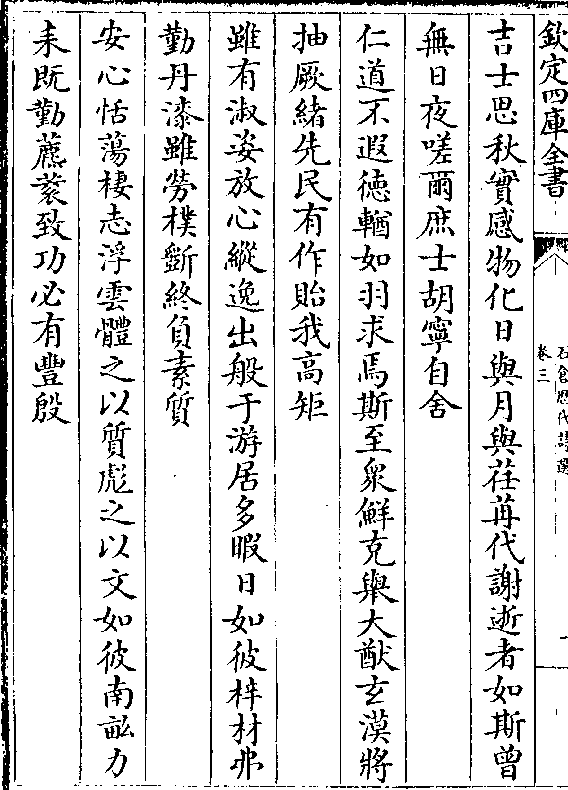 欽定四庫全書
石倉歷代詩選
卷三
吉士思秋實感物化日與月與荏苒代謝逝者如斯曾
無日夜嗟爾庶士胡寧自舍
仁道不遐徳輶如羽求焉斯至衆鮮克舉大猷玄漠將
抽厥緒先民有作貽我高矩
雖有淑姿放心縱逸出般于游居多暇日如彼梓材弗
勤丹漆雖勞樸斵終負素質
安心恬蕩棲志浮雲體之以質彪之以文如彼南畝力
耒既勤藨蔉致功必有豐殷